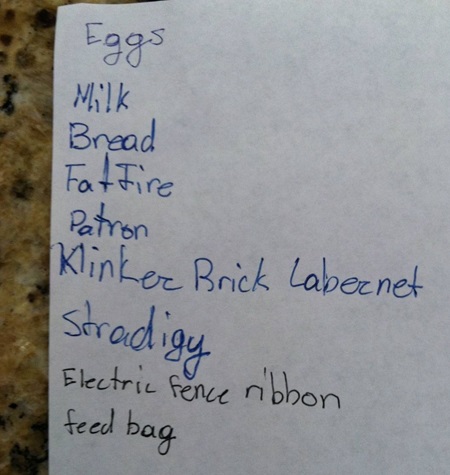 Eggs
Milk
Bread
Fat Fire
Patron
Klinker Brick Cabernet
Stradigy
Electric fence ribbon
feed bag